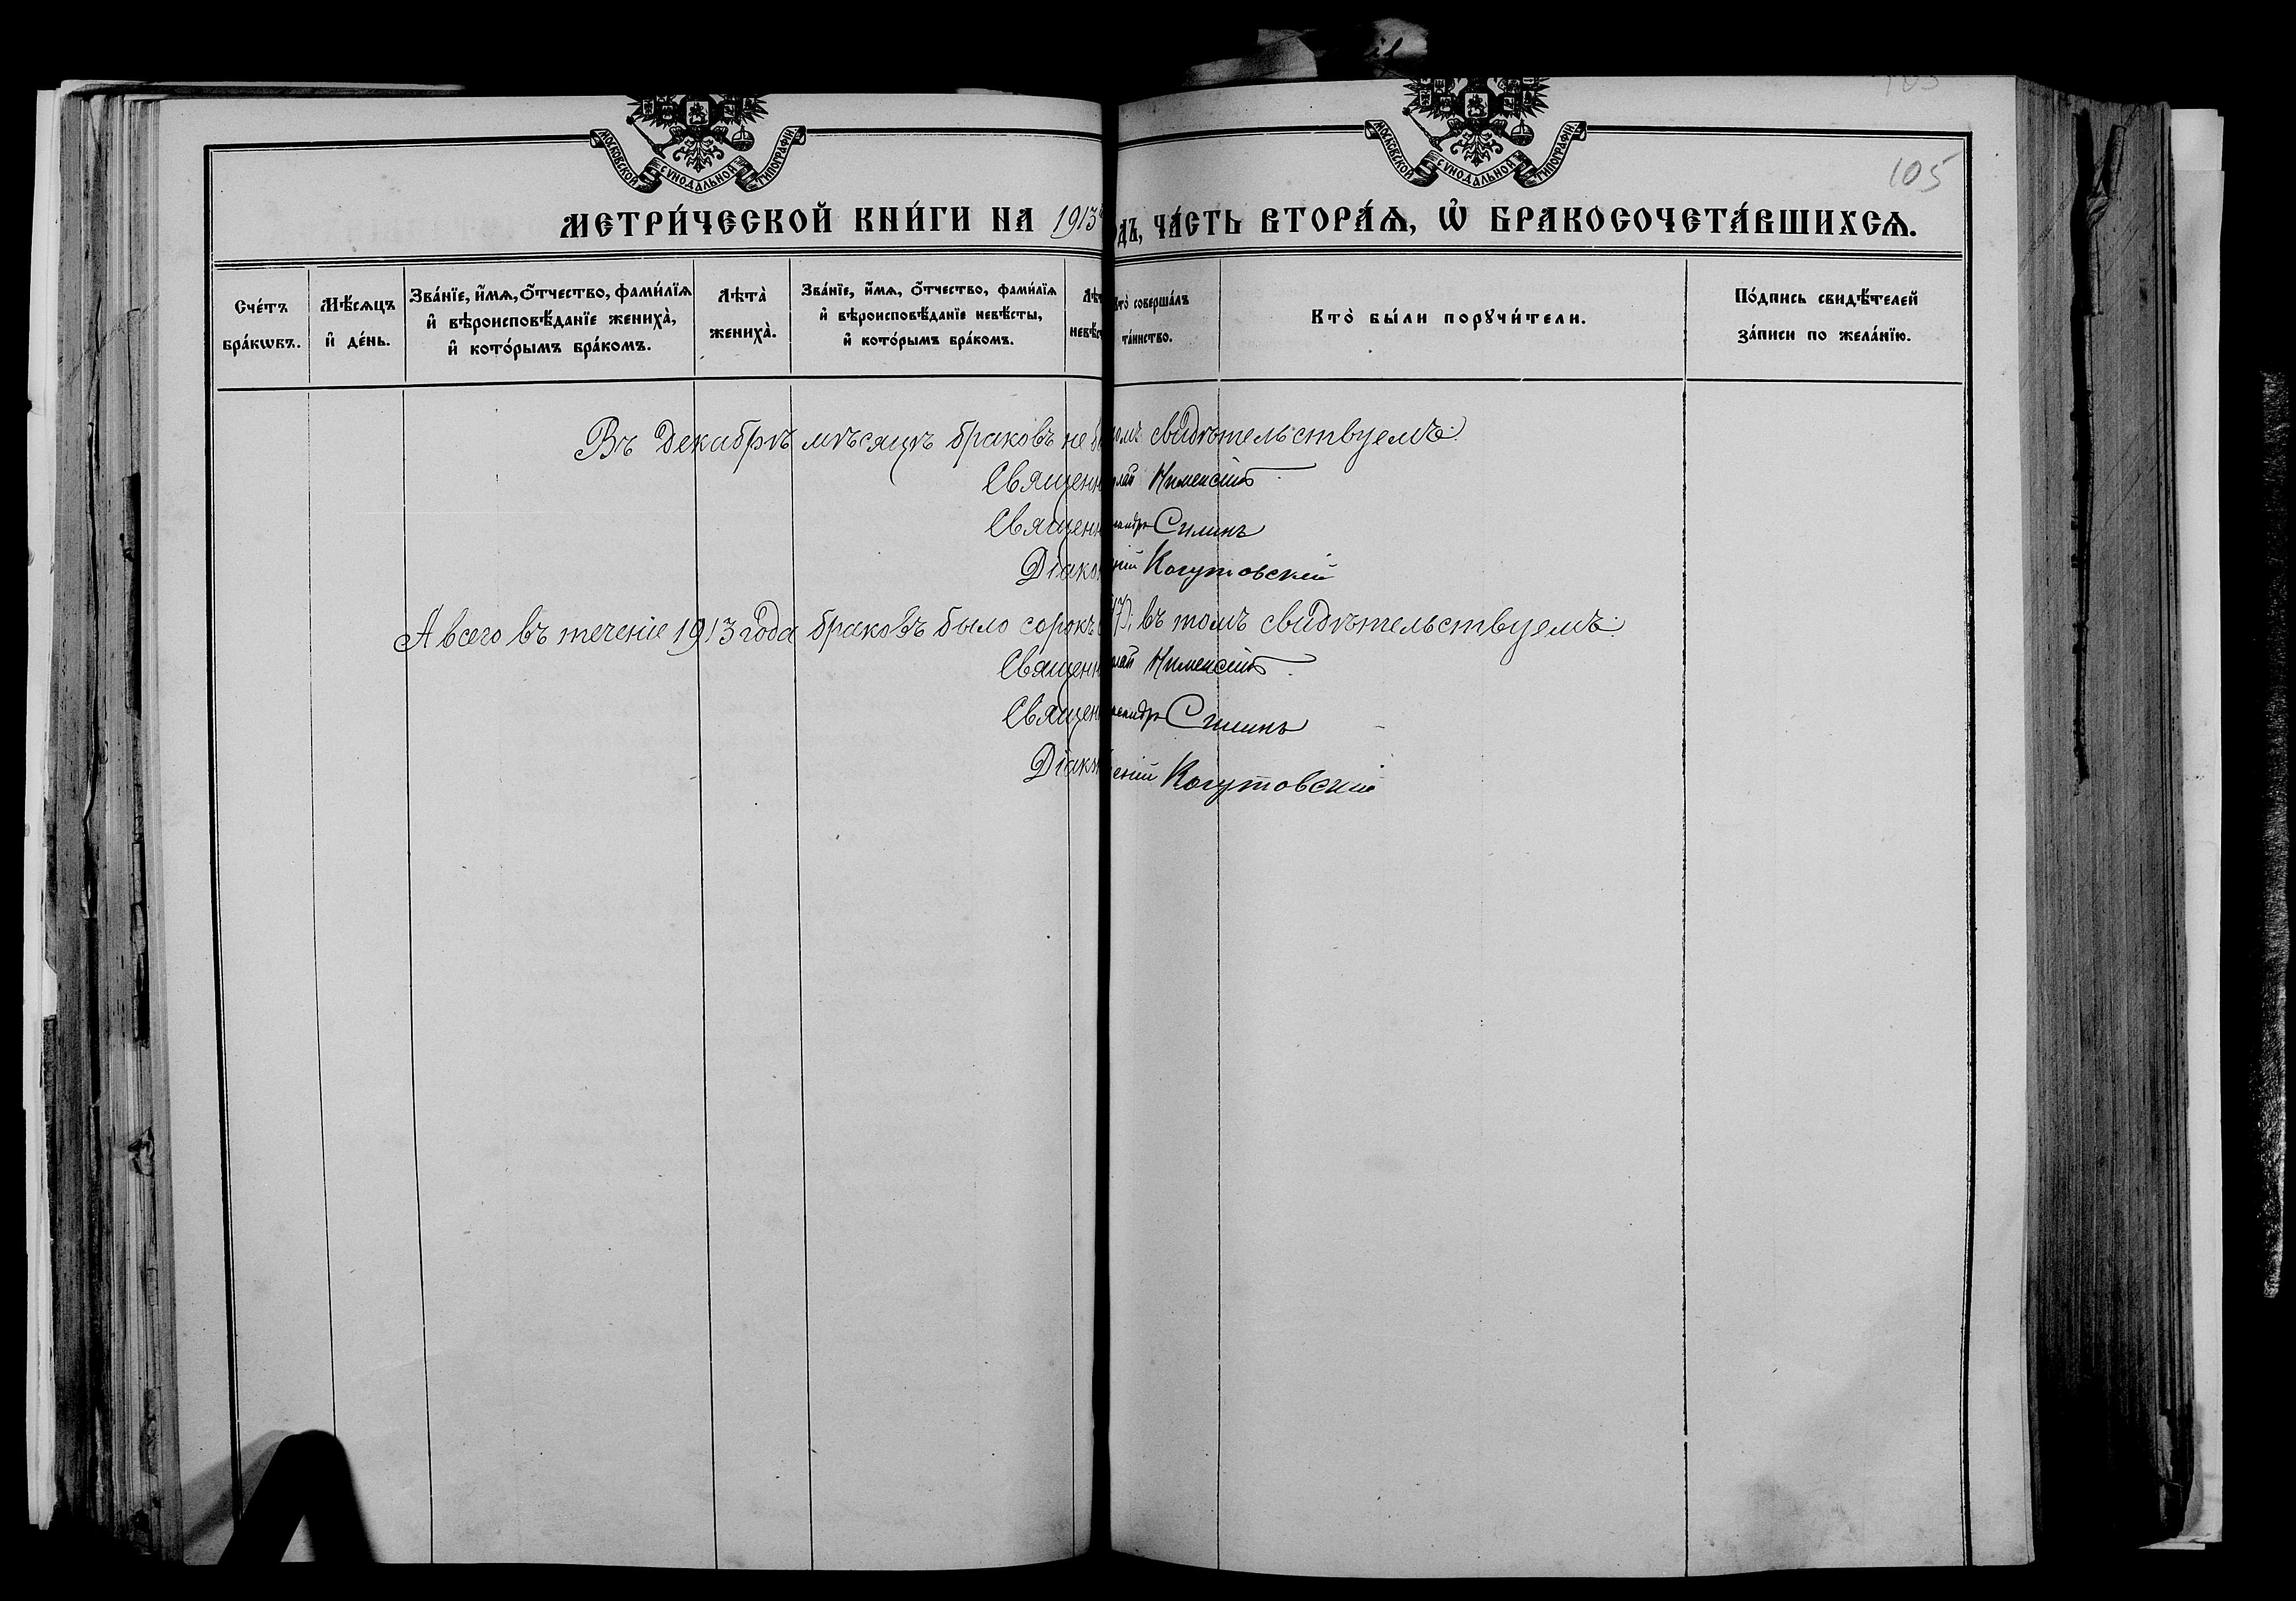 105
МОСКОВСКОЙ СѴНОДАЛЬНОЙ ТИПОГРАФІИ.
МОСКОВСКОЙ СѴНОДАЛЬНОЙ ТИПОГРАФІИ.
МЕТРИ́ЧЕСКОЙ КНИ́ГИ НА 1913 ОДЪ, ЧА́СТЬ ВТОРА́Ѧ, Ѽ БРАКОСОЧЕТА́ВШИХСѦ.
Сче́тъ бра́кѡвъ.
Мѣ́сѧцъ и҆ де́нь.
Зва́нїе, и҆́мѧ, ѻ҆́тчество, фами́лїѧ и҆ вѣроисповѣ́данїе жениха̀, и҆ кото́рымъ бра́комъ.
Лѣта̀ жениха̀.
Зва́нїе, и҆́мѧ, ѻ҆́тчество, фами́лїѧ и҆ вѣроисповѣ́данїе невѣ́сты, и҆ кото́рымъ бра́комъ.
Лѣт невѣс
Кто̀ соверша́лъ та́инство.
Кто̀ бы́ли порꙋчи́тели.
По́дпись свидѣ́телей за́писи по жела́нїю.
Въ Декабрѣ мѣсяцѣ браковъ не б омъ свидѣтельствуемъ:
Священн лай
Священн сандръ Силинъ
Діако ній Когутовскій
А всего въ теченіе 1913 года браковъ было сорокъ 7); въ томъ свидѣтельствуемъ:
Священн лай
Священ ександръ Силинъ
Діако еній Когутовскій